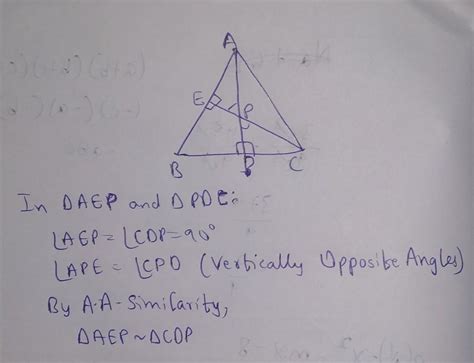 A
E
P
B
D
C
In ΔAEP and ΔPDC:
∠AEP = ∠CDP = 90°
∠APE = ∠CPD (Vertically Opposite Angles)
By A.A-Similarity,
ΔAEP ~ ΔCDP